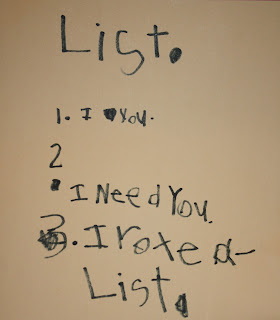 List.
1. I ♥ You.
2
. I Need You.
3. I rote a
List.